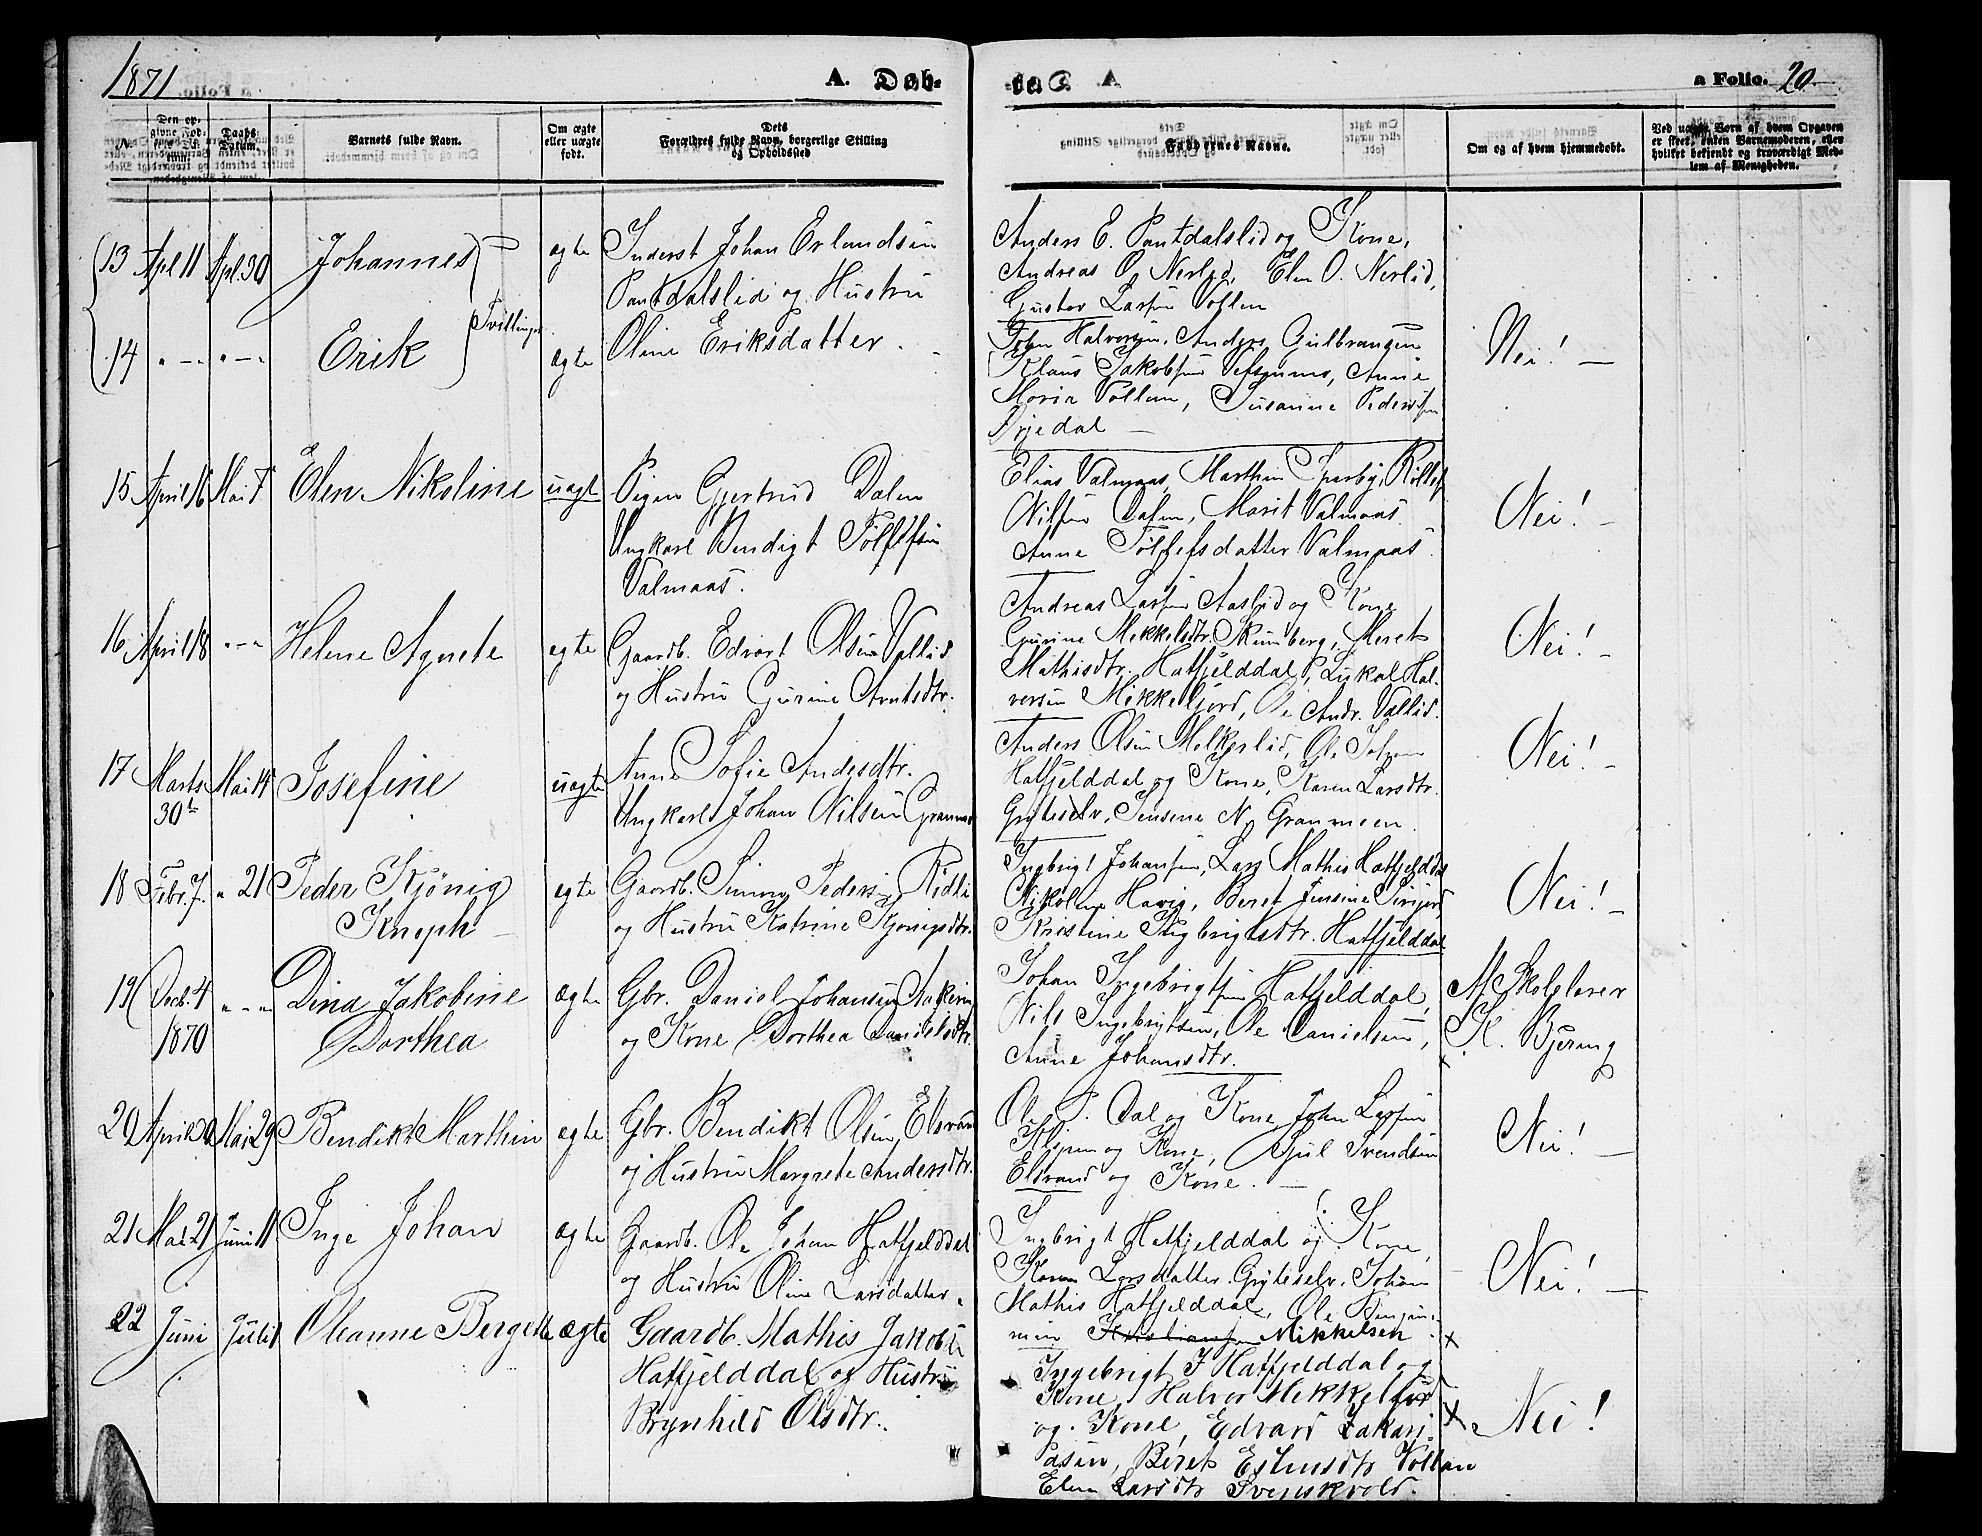 1871
A. Døb-
te.
a Folio. 20.
No.
Den op-
givne Fød-
sels Da-
tum.
Daabs-
Datum.
Barnets fulde Navn.
Om ægte
eller uægte
født.
Dets
Forældres fulde Navn, borgerlige Stilling
og Opholdssted
Faddernes Navne.
Om og af hvem hjemmedøbt.
Ved uægte Børn af hvem Opgaven
er skeet, enten Barnemoderen, eller
hvilket bekjendt og troværdigt Med-
lem af Menigheden.
13 Apl 11 Apl. 30 Johannes
Tvillinger
ægte
Inderst Johan Erlandsen
Pantdalslid og Hustru
Oline Eriksdatter.
Anders E. Pantdalslid og Kone,
Andreas O. Nerlid, Elen O. Nerlid,
Gustav Larsen Vollen
14 " — " " — " Erik ægte
John Halvorsen, Anders Gulbransen
Klaus Jakobsen Vefsenmo, Anne
Maria Vollen, Susanne Pedersen
Nei! —
15 April 16 Mai 7 Elen Nikoline uægte
Pigen Gjertrud Dalen
Ungkarl Bendigt Tølfsen
Valmaas.
Elias Valmaas, Marthin
Nilsen Dalen, Marit Valmaas.
Anne Tøllefsdatter Valmaas.
Nei! —
16 April 18 " — " Helene Agnete ægte
Gaardb. Edvart Olsen Vallid
og Hustru Gurine Arntsdtr.
Andreas Larsen Aaslid og Kone
Gurine Mikkelsdtr. Meret
Mathisdtr. Hatfjelddal, Hal-
versen Mikkeljord, Ole Andr. Vallid.
Nei! —
17 Marts
30te
Mai 14 Josefine uægte
Anne Sofie Andersdtr.
Ungkarl Johan Nilsen
Anders Olsen Ole Johan
Hatfjelddal og Kone, Karen Larsdtr.
Gryteselv, Jensine N. Granmoen.
Nei! —
18 Febr. 7. " 21 Peder Kjønig
Knoph —
ægte
Gaardb. Simon Peders.
og Hustru Katrine Kjønigsdtr.
Ingbrigt Johansen, Lars Mathis Hatfjelddal
Nikoline Beret Jensine
Kristine Ingbrigtsdtr. Hatfjelddal
Nei! —
19 Decb. 4
1870
" — " Dina Jakobine
Dorthea
ægte
Gbr. Daniel Johansen
og Kone Dorthea Danielsdtr.
Johan Ingebrigtsen Hatfjelddal,
Nils Ingebrigtsen, Ole Danielsen,
Anne Johansdtr.
Af Skolelærer
K. Bjering
20 April Mai 29 Bendikt Marthin ægte
Gbr. Bendikt Olsen, Elsvand
og Hustru Margrete Andersdtr.
Ole P. Dal og Kone John Larsen
og Kone, Svendsen
Elsvand og Kone. —
Nei! —
21 Mai 21 Juni 11 Inge Johan ægte
Gaardb. Ole Johan Hatfjelddal
og Hustru Oline Larsdatter.
Ingbrigt Hatfjelddal og Kone,
Karen Larsdatter Gryteselv, Johan
Mathis Hatfjelddal, Ole Benjam-
min Kristiansen Mikkelsen
Nei! —
22 Juni Juli Oleanne Bergette ægte
Gaardb. Mathis Jakobs.
Hatfjelddal og Hustru
Brynhild Olsdtr.
Ingebrigt J Hatfjelddal og
Kone, Halvor Mikkeljord
og Kone, Edvard Zakari-
asen, Beret Estensdtr Vollan
Elen Larsdtr Svenskvold.
Nei!